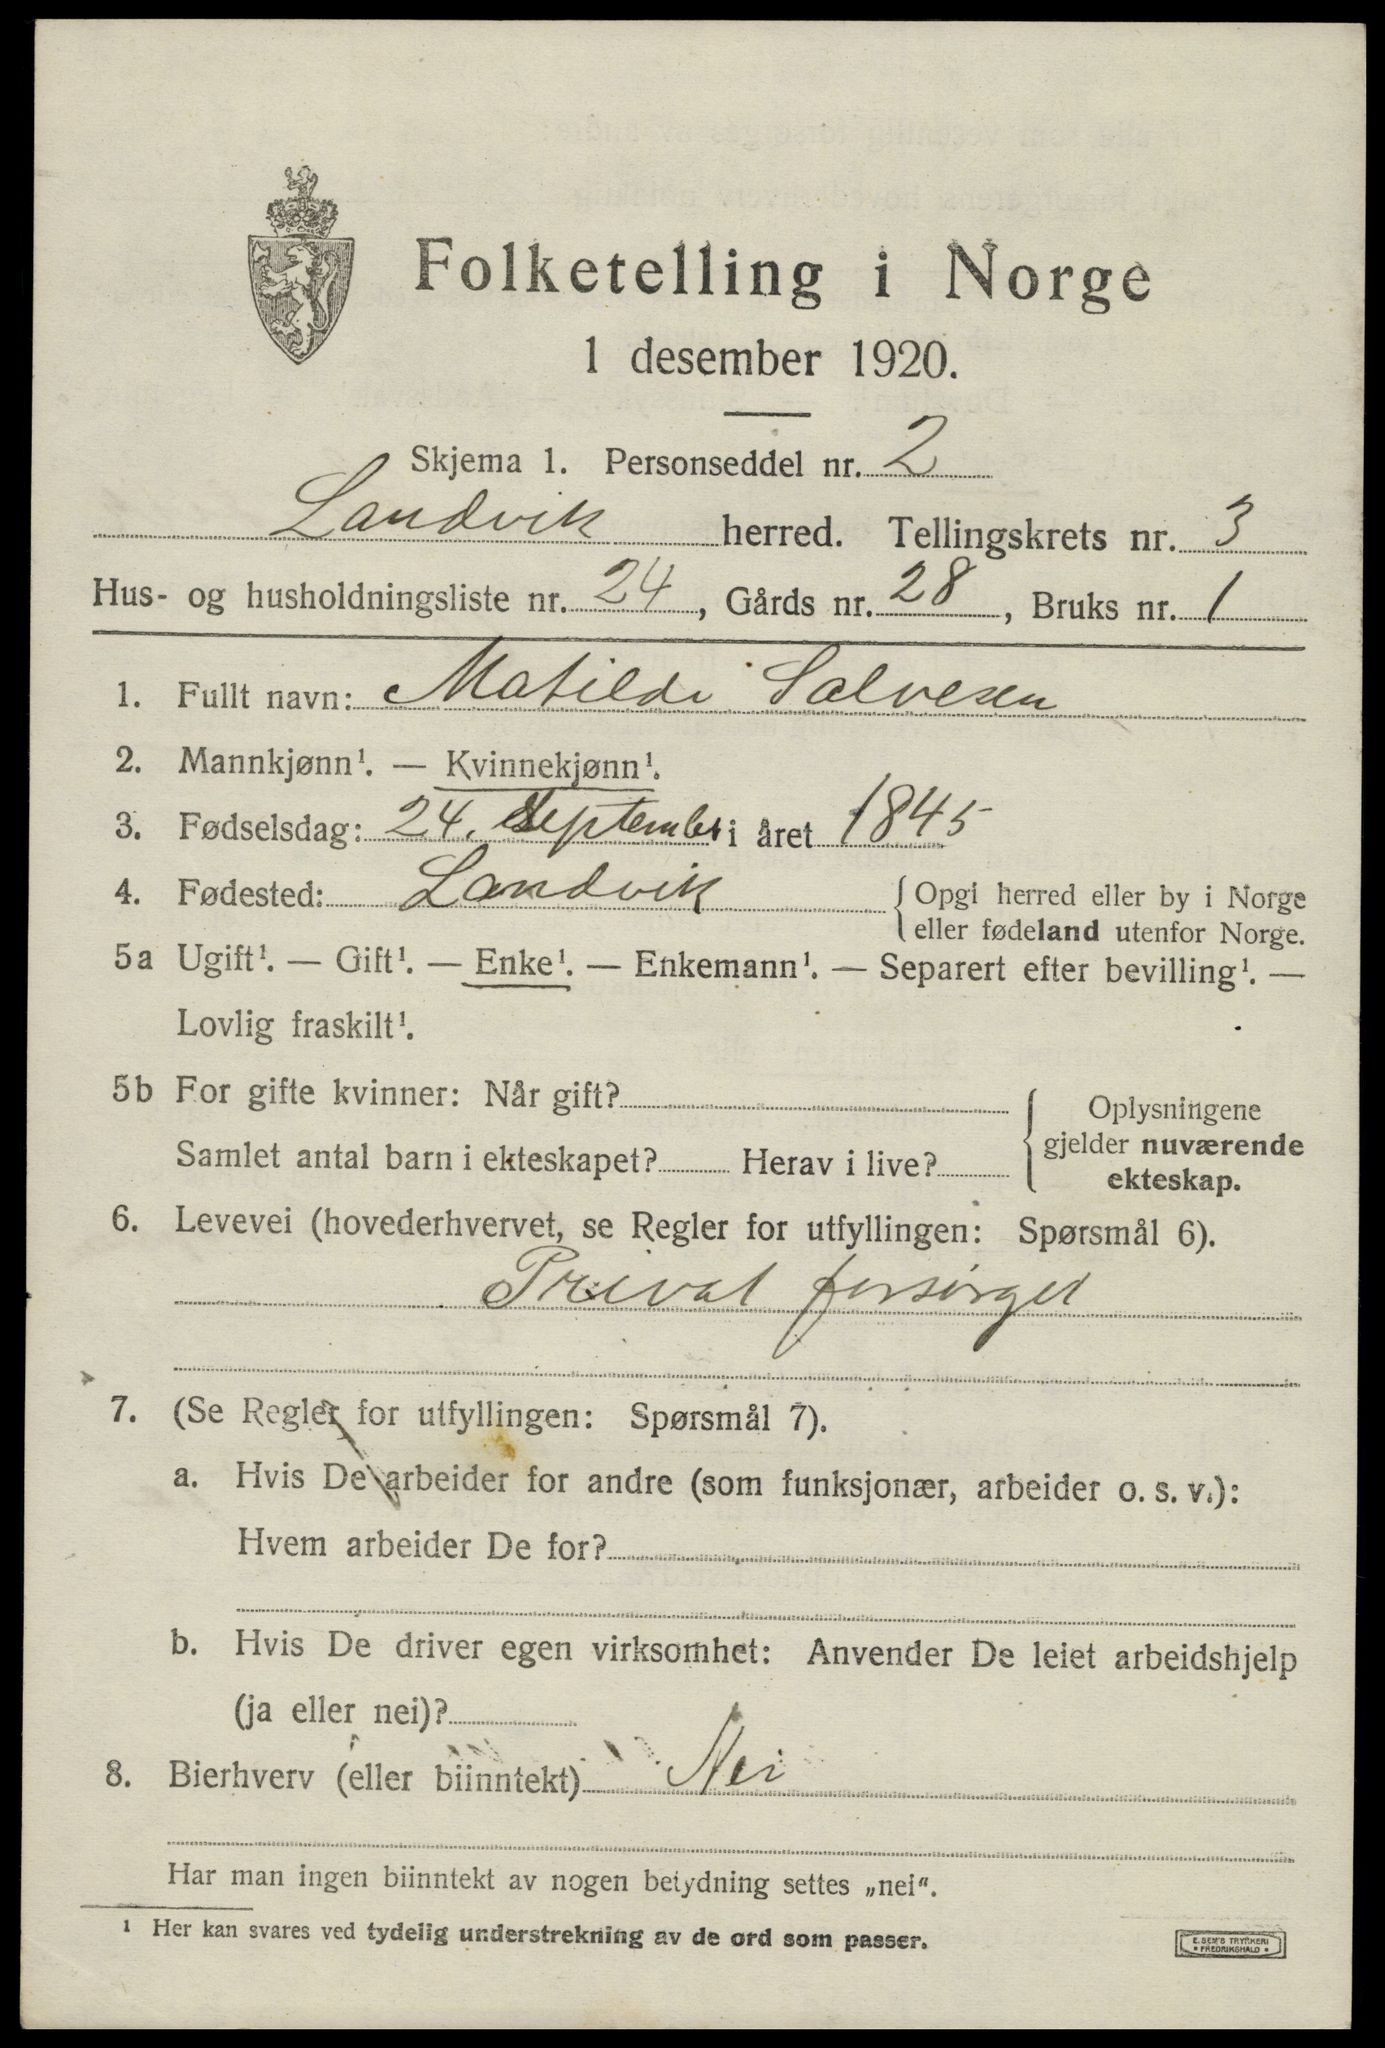 Folketelling i Norge
1 desember 1920.
Skjema 1. Personseddel nr. 2
Landvik herred. Tellingskrets nr. 3
Hus- og husholdningsliste nr. 24, Gårds nr. 28, Bruks nr. 1
1. Fullt navn: Matilde Salvesen
2. Mannkjønn¹. — Kvinnekjønn¹.
3. Fødselsdag: 24. September i året 1845
4. Fødested: Landvik { Opgi herred eller by i Norge
eller fødeland utenfor Norge.
5a Ugift¹. — Gift¹. — Enke¹. — Enkemann¹. — Separert efter bevilling¹. —
Lovlig fraskilt¹.
5b For gifte kvinner: Når gift?
Samlet antal barn i ekteskapet? Herav i live?
{ Oplysningene
gjelder nuværende
ekteskap.
6. Levevei (hovederhvervet, se Regler for utfyllingen: Spørsmål 6).
Privat forsørget
7. (Se Regler for utfyllingen: Spørsmål 7).
a. Hvis De arbeider for andre (som funksjonær, arbeider o. s. v.):
Hvem arbeider De for?
b. Hvis De driver egen virksomhet: Anvender De leiet arbeidshjelp
(ja eller nei)?
8. Bierhverv (eller biinntekt) Nei
Har man ingen biinntekt av nogen betydning settes „nei“.
¹ Her kan svares ved tydelig understrekning av de ord som passer.
E. SEM'S TRYKKERI
• FREDRIKSHALD •